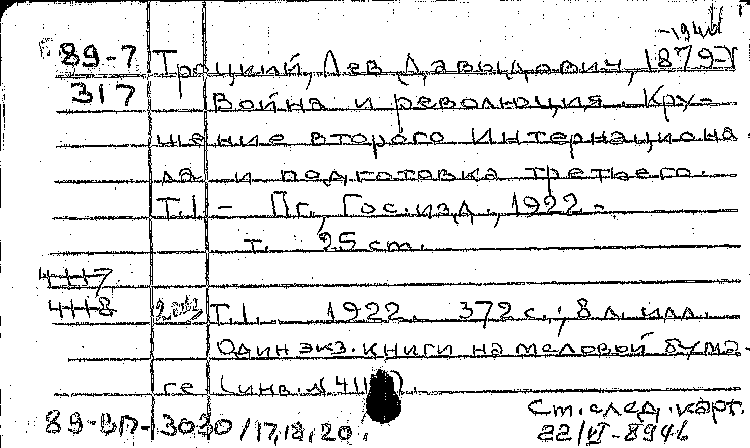 -1940
89-7 Троцкий, Лев Давыдович, 1879-
317 Война и революция. Кру-
шение второго Интернациона-
ла и подготовка третьего.
Т.1 - Пг., Гос. изд., 1922 -
т. 25 cm.
4117
4118 Т.1. 1922. 372 с.; 8 л. илл.
Один экз. книги на меловой бума-
ге (инв. №
89-ВП-3030/17,18,20.
См. след. карт.
22/VI-894b